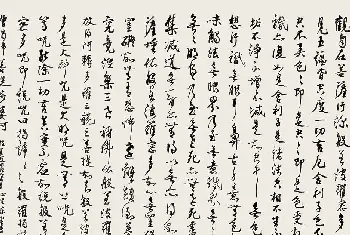 觀自在菩薩行深般若波羅蜜多
見五蘊皆空度一切苦厄舍利子色不
空不異色色即是空空即是色受想
識亦復如是舍利子是諸法空相不生
垢不淨不增不減是故空中無色
想行識無眼耳鼻舌身意無色聲
味觸法無眼界乃至無意識界無
無明盡乃至無老死亦無老死盡無苦
集滅道無智亦無得以無所得故
薩埵依般若波羅蜜多故心無罣礙
罣礙故無有恐怖遠離顛倒夢想
究竟涅槃三世諸佛依般若波羅蜜
故得阿耨多羅三藐三菩提故知般若
多是大神咒是大明咒是無上咒是
咒能除一切苦真實不虛故說般若
蜜多咒即說咒曰揭諦揭諦波羅揭諦
僧揭諦菩提薩婆訶